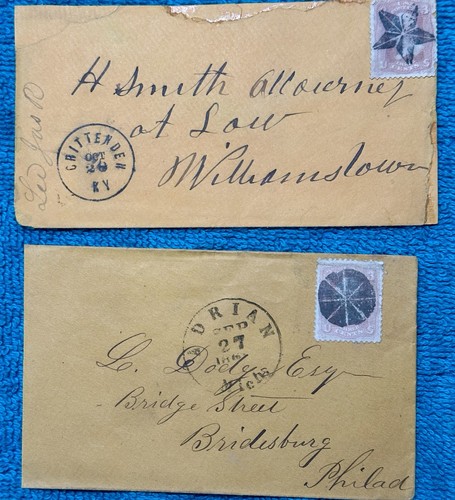 H Smith Attorney
at Low
Williamstown
CRITTENDEN
OCT
26
KY
ADRIAN
SEP
27
Mich
L. Dodge Esqr
Bridge Street
Bridesburg
Philad